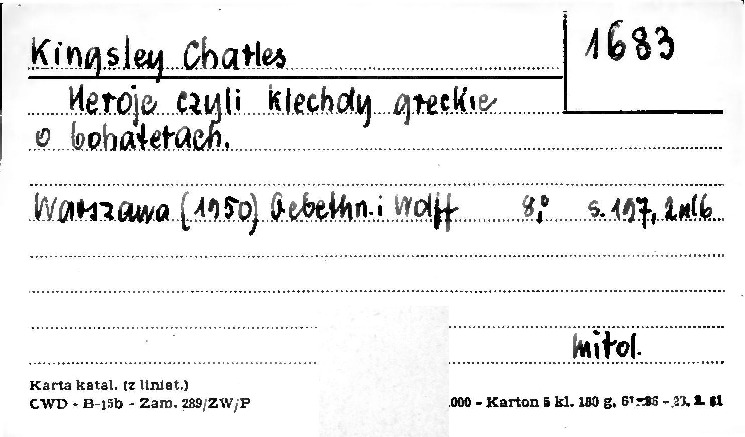 Kingsley Charles
1683
Heroje czyli klechdy greckie
o bohaterach.
Warszawa (1950) Gebethn. i Wolff 8,° s. 197, 2 nlb
mitol.
Karta katal. (z liniat.)
CWD - B-15b - Zam. 289/ZW/P
.000 - Karton 5 kl. 180 g.